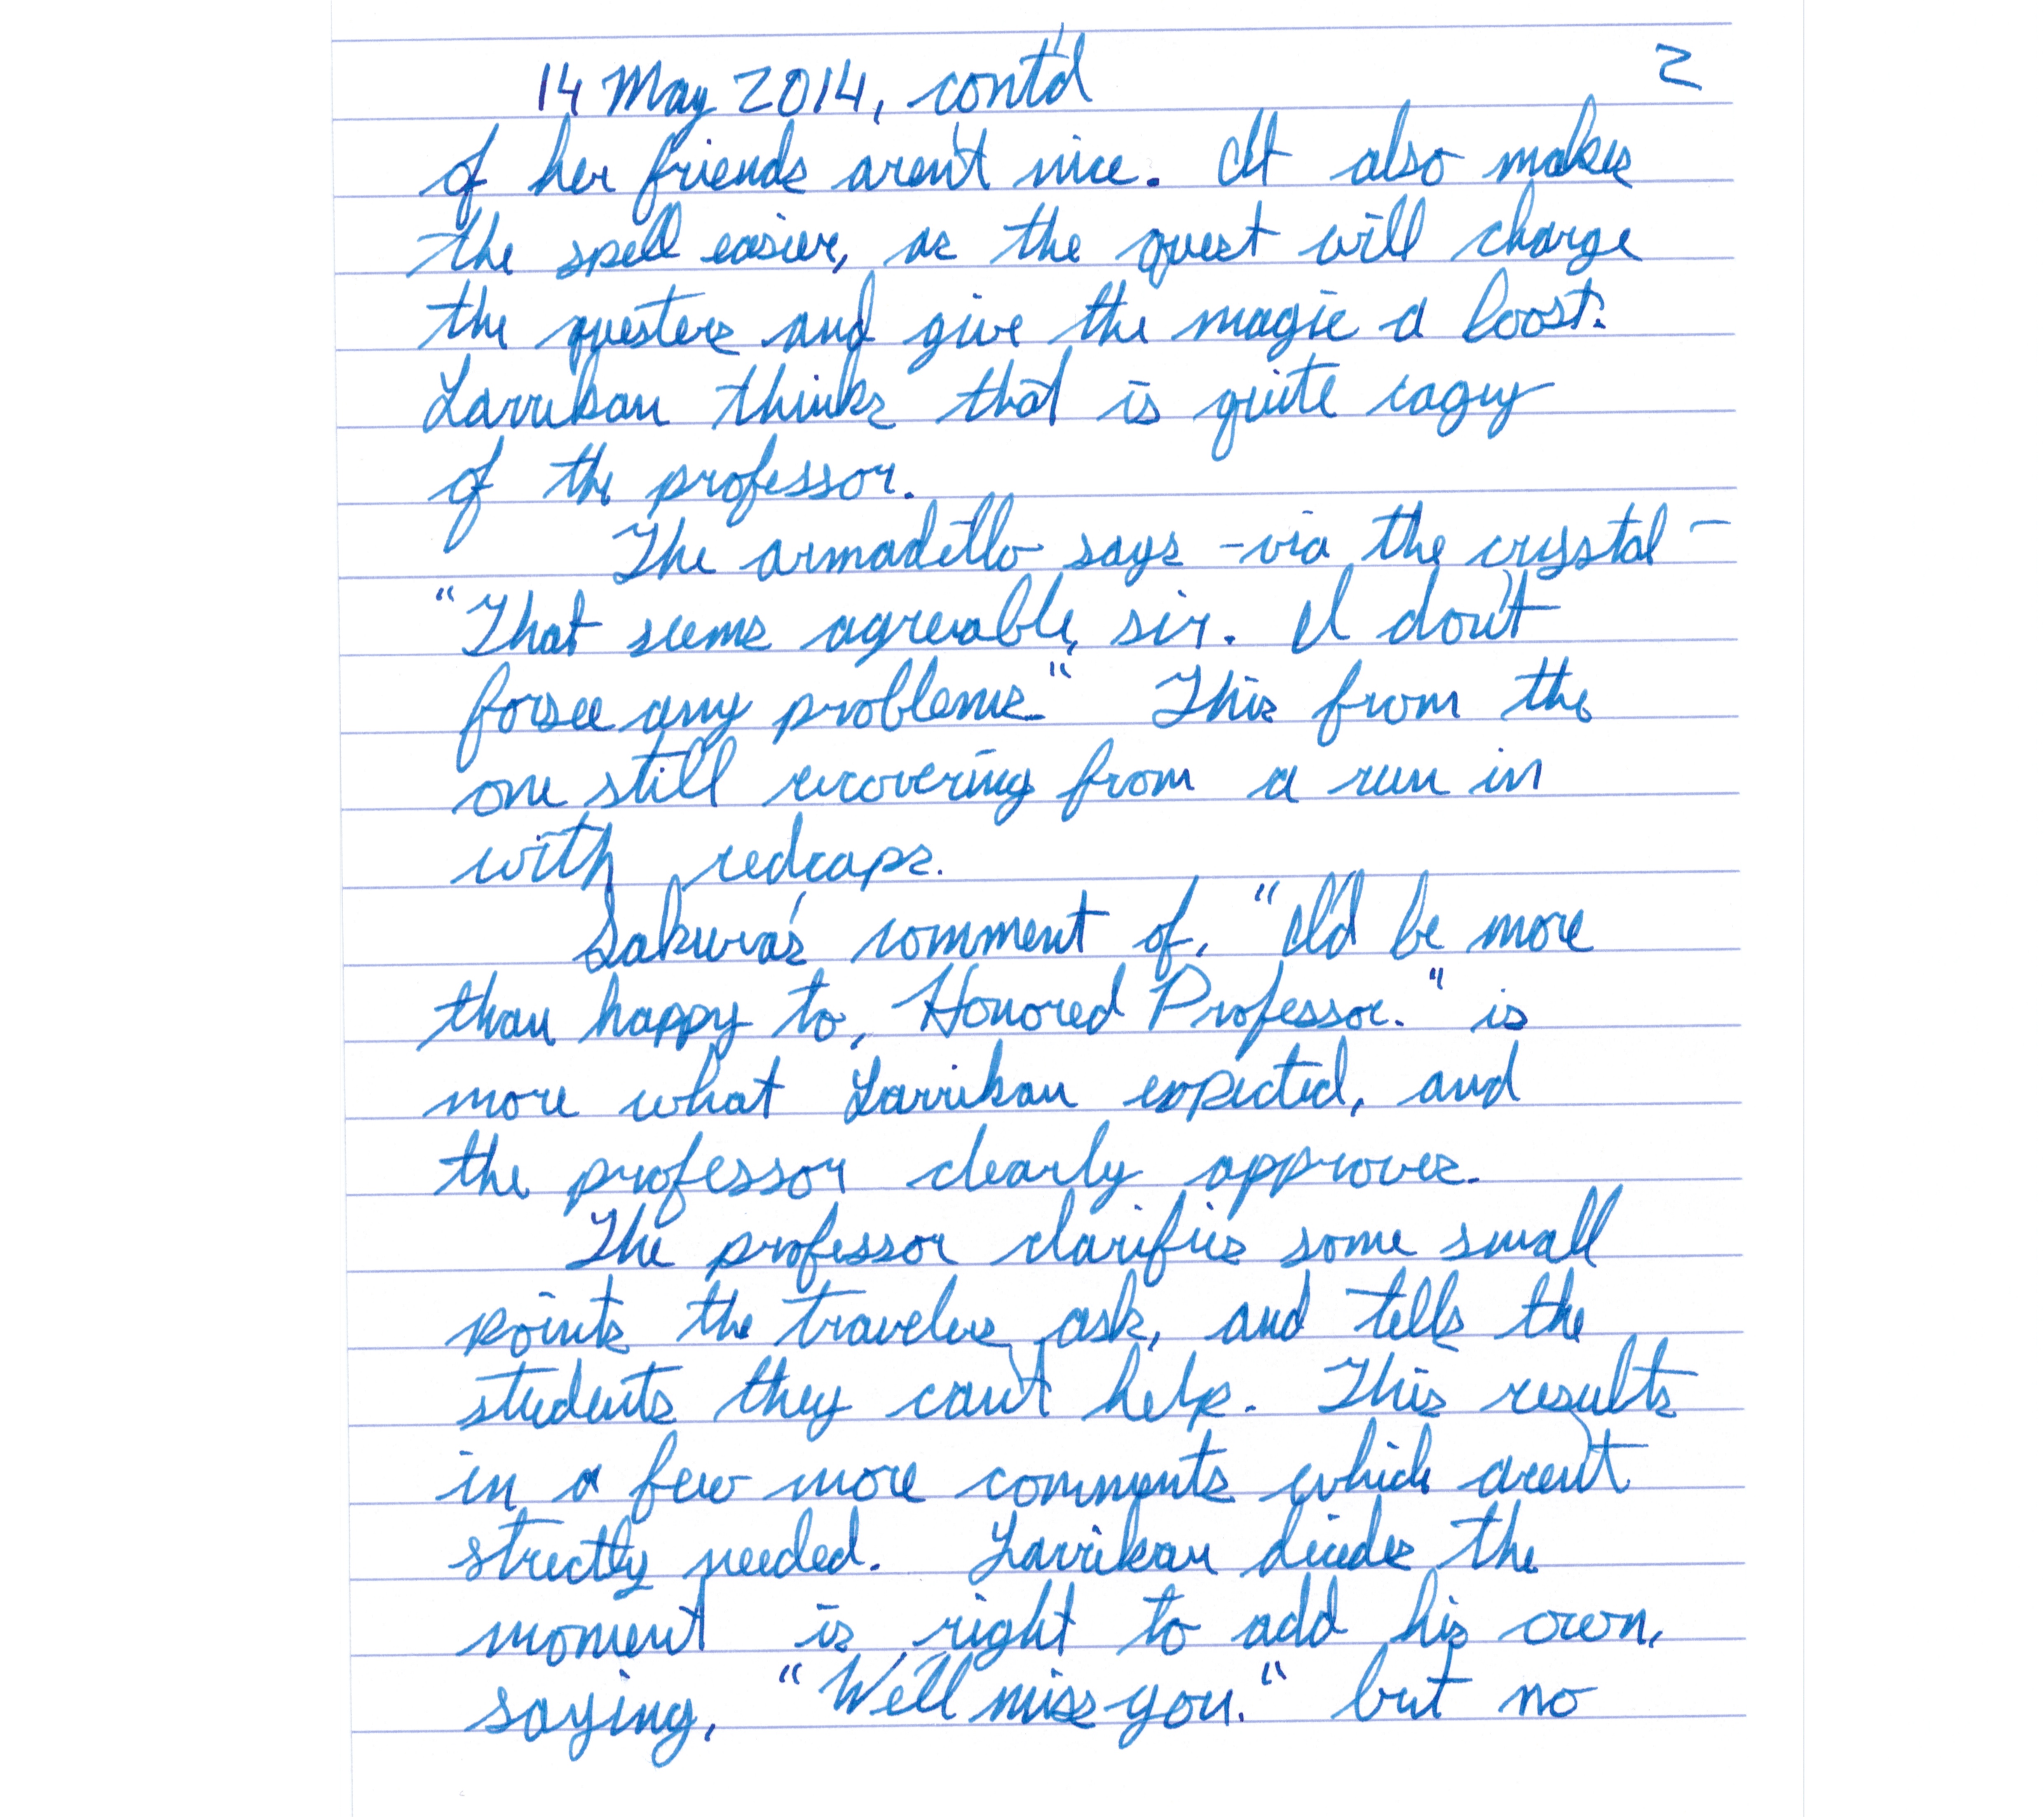 14 May 2014, cont'd 2
of her friends aren't nice. It also makes
the spell easier, as the quest will charge
the questers and give the magic a boost.
Larrikan thinks that is quite cagey
of the professor.
The armadillo says - via the crystal -
"That seems agreeable, sir. I don't
forsee any problems." This from the
one still recovering from a run in
with redcaps.
Sakura's comment of, "I'd be more
than happy to, Honored Professor." is
more what Larrikan expected, and
the professor clearly approves.
The professor clarifies some small
points the travelers ask, and tells the
students they can't help. This results
in a few more comments which aren't
strictly needed. Larrikan decides the
moment is right to add his own,
saying, "We'll miss you." but no